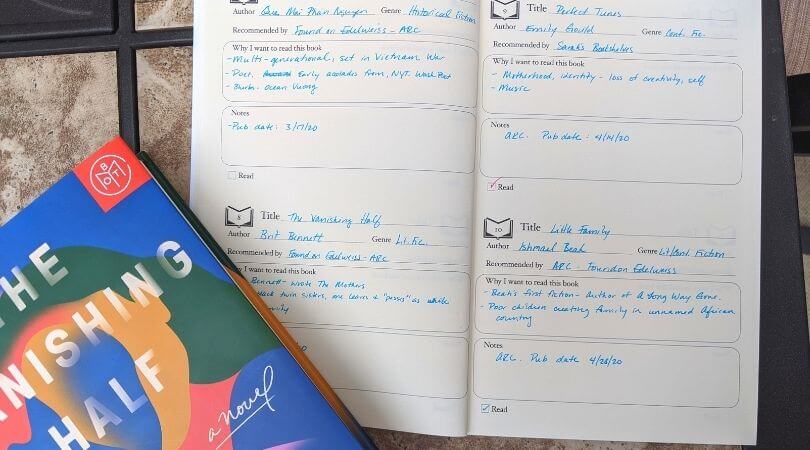 Author Que Mai Phan Nguyen Genre Historical Fiction
Recommended by Found on Edelweiss - ARC
Why I want to read this book
- Multi-generational, set in Vietnam War
- Poet. Early accolades from, NYT, Wash Post
- Blurb: Ocean Vuong
Notes
- Pub date: 3/17/20
Read
8
Title The Vanishing Half
Author Brit Bennett Genre Lit. Fic.
Recommended by Found on Edelweiss - ARC
Why I want to read this book
Bennett - wrote The Mothers
twin sisters, one leaves & "passes" as white
Read
9
Title Perfect Tunes
Author Emily Gould Genre Cont. Fic.
Recommended by Sarah's Bookshelves
Why I want to read this book
- Motherhood, identity - loss of creativity, self
- Music
Notes
ARC. Pub date: 4/14/20
Read
10
Title Little Family
Author Ishmael Beah Genre Lit/Cont. Fiction
Recommended by ARC - Found on Edelweiss
Why I want to read this book
- Beah's first fiction - author of A Long Way Gone.
- Poor children creating family in unnamed African
country
Notes
ARC. Pub date 4/28/20
Read
BOTM
THE
VANISHING
HALF
a novel